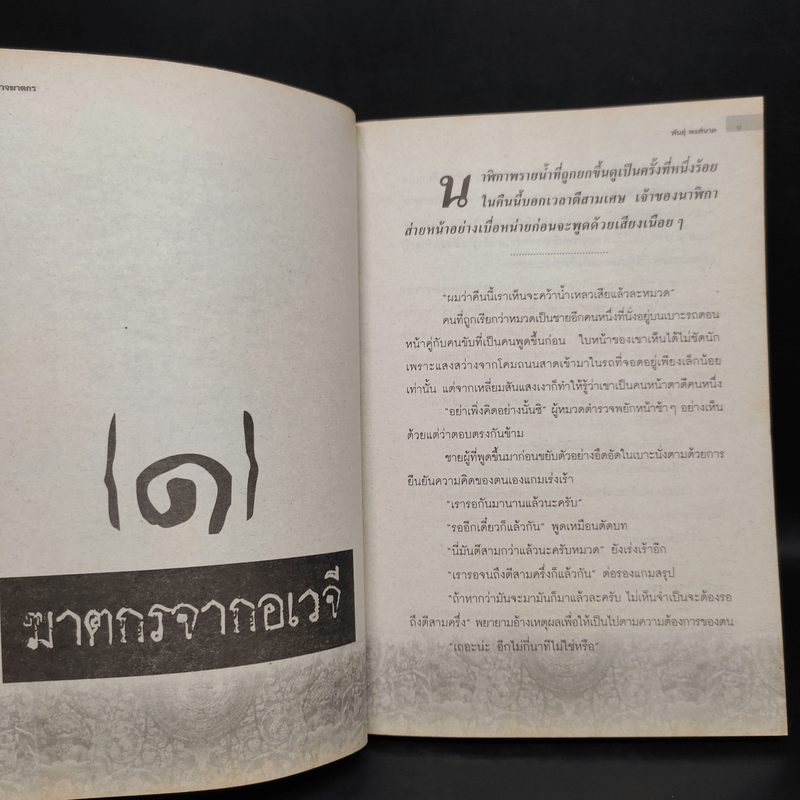 ๑
ฆาตกรจากอเวจี
พันธุ์ พงศ์นาค
นาฬิกาพรายน้ำที่ถูกยกขึ้นดูเป็นครั้งที่หนึ่งร้อย
ในคืนนี้บอกเวลาตีสามเศษ เจ้าของนาฬิกา
ส่ายหน้าอย่างเบื่อหน่ายก่อนจะพูดด้วยเสียงเนือย ๆ
"ผมว่าคืนนี้เราเห็นจะคว้าน้ำเหลวเสียแล้วละหมวด"
คนที่ถูกเรียกว่าหมวดเป็นชายอีกคนหนึ่งที่นั่งอยู่บนเบาะรถตอน
หน้าคู่กับคนขับที่เป็นคนพูดขึ้นก่อน ใบหน้าของเขาเห็นได้ไม่ชัดนัก
เพราะแสงสว่างจากโคมถนนสาดเข้ามาในรถที่จอดอยู่เพียงเล็กน้อย
เท่านั้น แต่จากเหลี่ยมสันแสงเงาก็ทำให้รู้ว่าเขาเป็นคนหน้าตาดีคนหนึ่ง
"อย่าเพิ่งคิดอย่างนั้นซิ" ผู้หมวดตำรวจพยักหน้าช้า ๆ อย่างเห็น
ด้วยแต่ว่าตอบตรงกันข้าม
ชายผู้ที่พูดขึ้นมาก่อนขยับตัวอย่างอึดอัดในเบาะนั่งตามด้วยการ
ยืนยันความคิดของตนเองแกมเร่งเร้า
"เรารอกันมานานแล้วนะครับ"
"รออีกเดี๋ยวก็แล้วกัน" พูดเหมือนตัดบท
"นี่มันตีสามกว่าแล้วนะครับหมวด" ยังเร่งเร้าอีก
"เรารอจนถึงตีสามครึ่งก็แล้วกัน" ต่อรองแกมสรุป
"ถ้าหากว่ามันจะมามันก็มาแล้วละครับ ไม่เห็นจำเป็นจะต้องรอ
ถึงตีสามครึ่ง" พยายามอ้างเหตุผลเพื่อให้เป็นไปตามความต้องการของตน
"เถอะน่ะ อีกไม่กี่นาทีไม่ใช่หรือ"